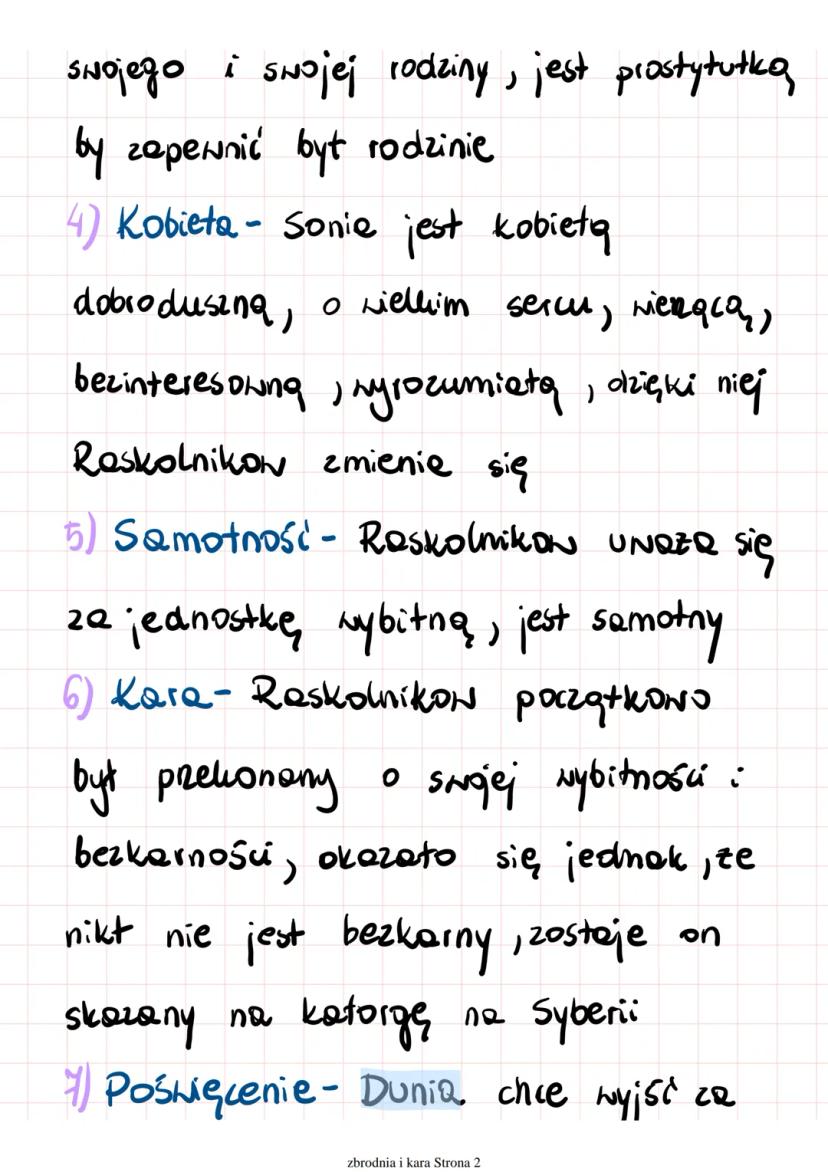 swojego i swojej rodziny, jest prostytutką
by zapewnić byt rodzinie
4) Kobieta - Sonia jest kobietą
dobroduszną, o wielkim sercu, wierzącą,
bezinteresowną, wyrozumiałą, dzięki niej
Raskolnikow zmienia się
5) Samotność - Raskolnikow uważa się
za jednostkę wybitną, jest samotny
6) Kara - Raskolnikow początkowo
był przekonany o swojej wybitności i
bezkarności, okazało się jednak, że
nikt nie jest bezkarny, zostaje on
skazany na katorgę na Syberii
7) Poświęcenie - Dunia. chce wyjść za
zbrodnia i kara Strona 2